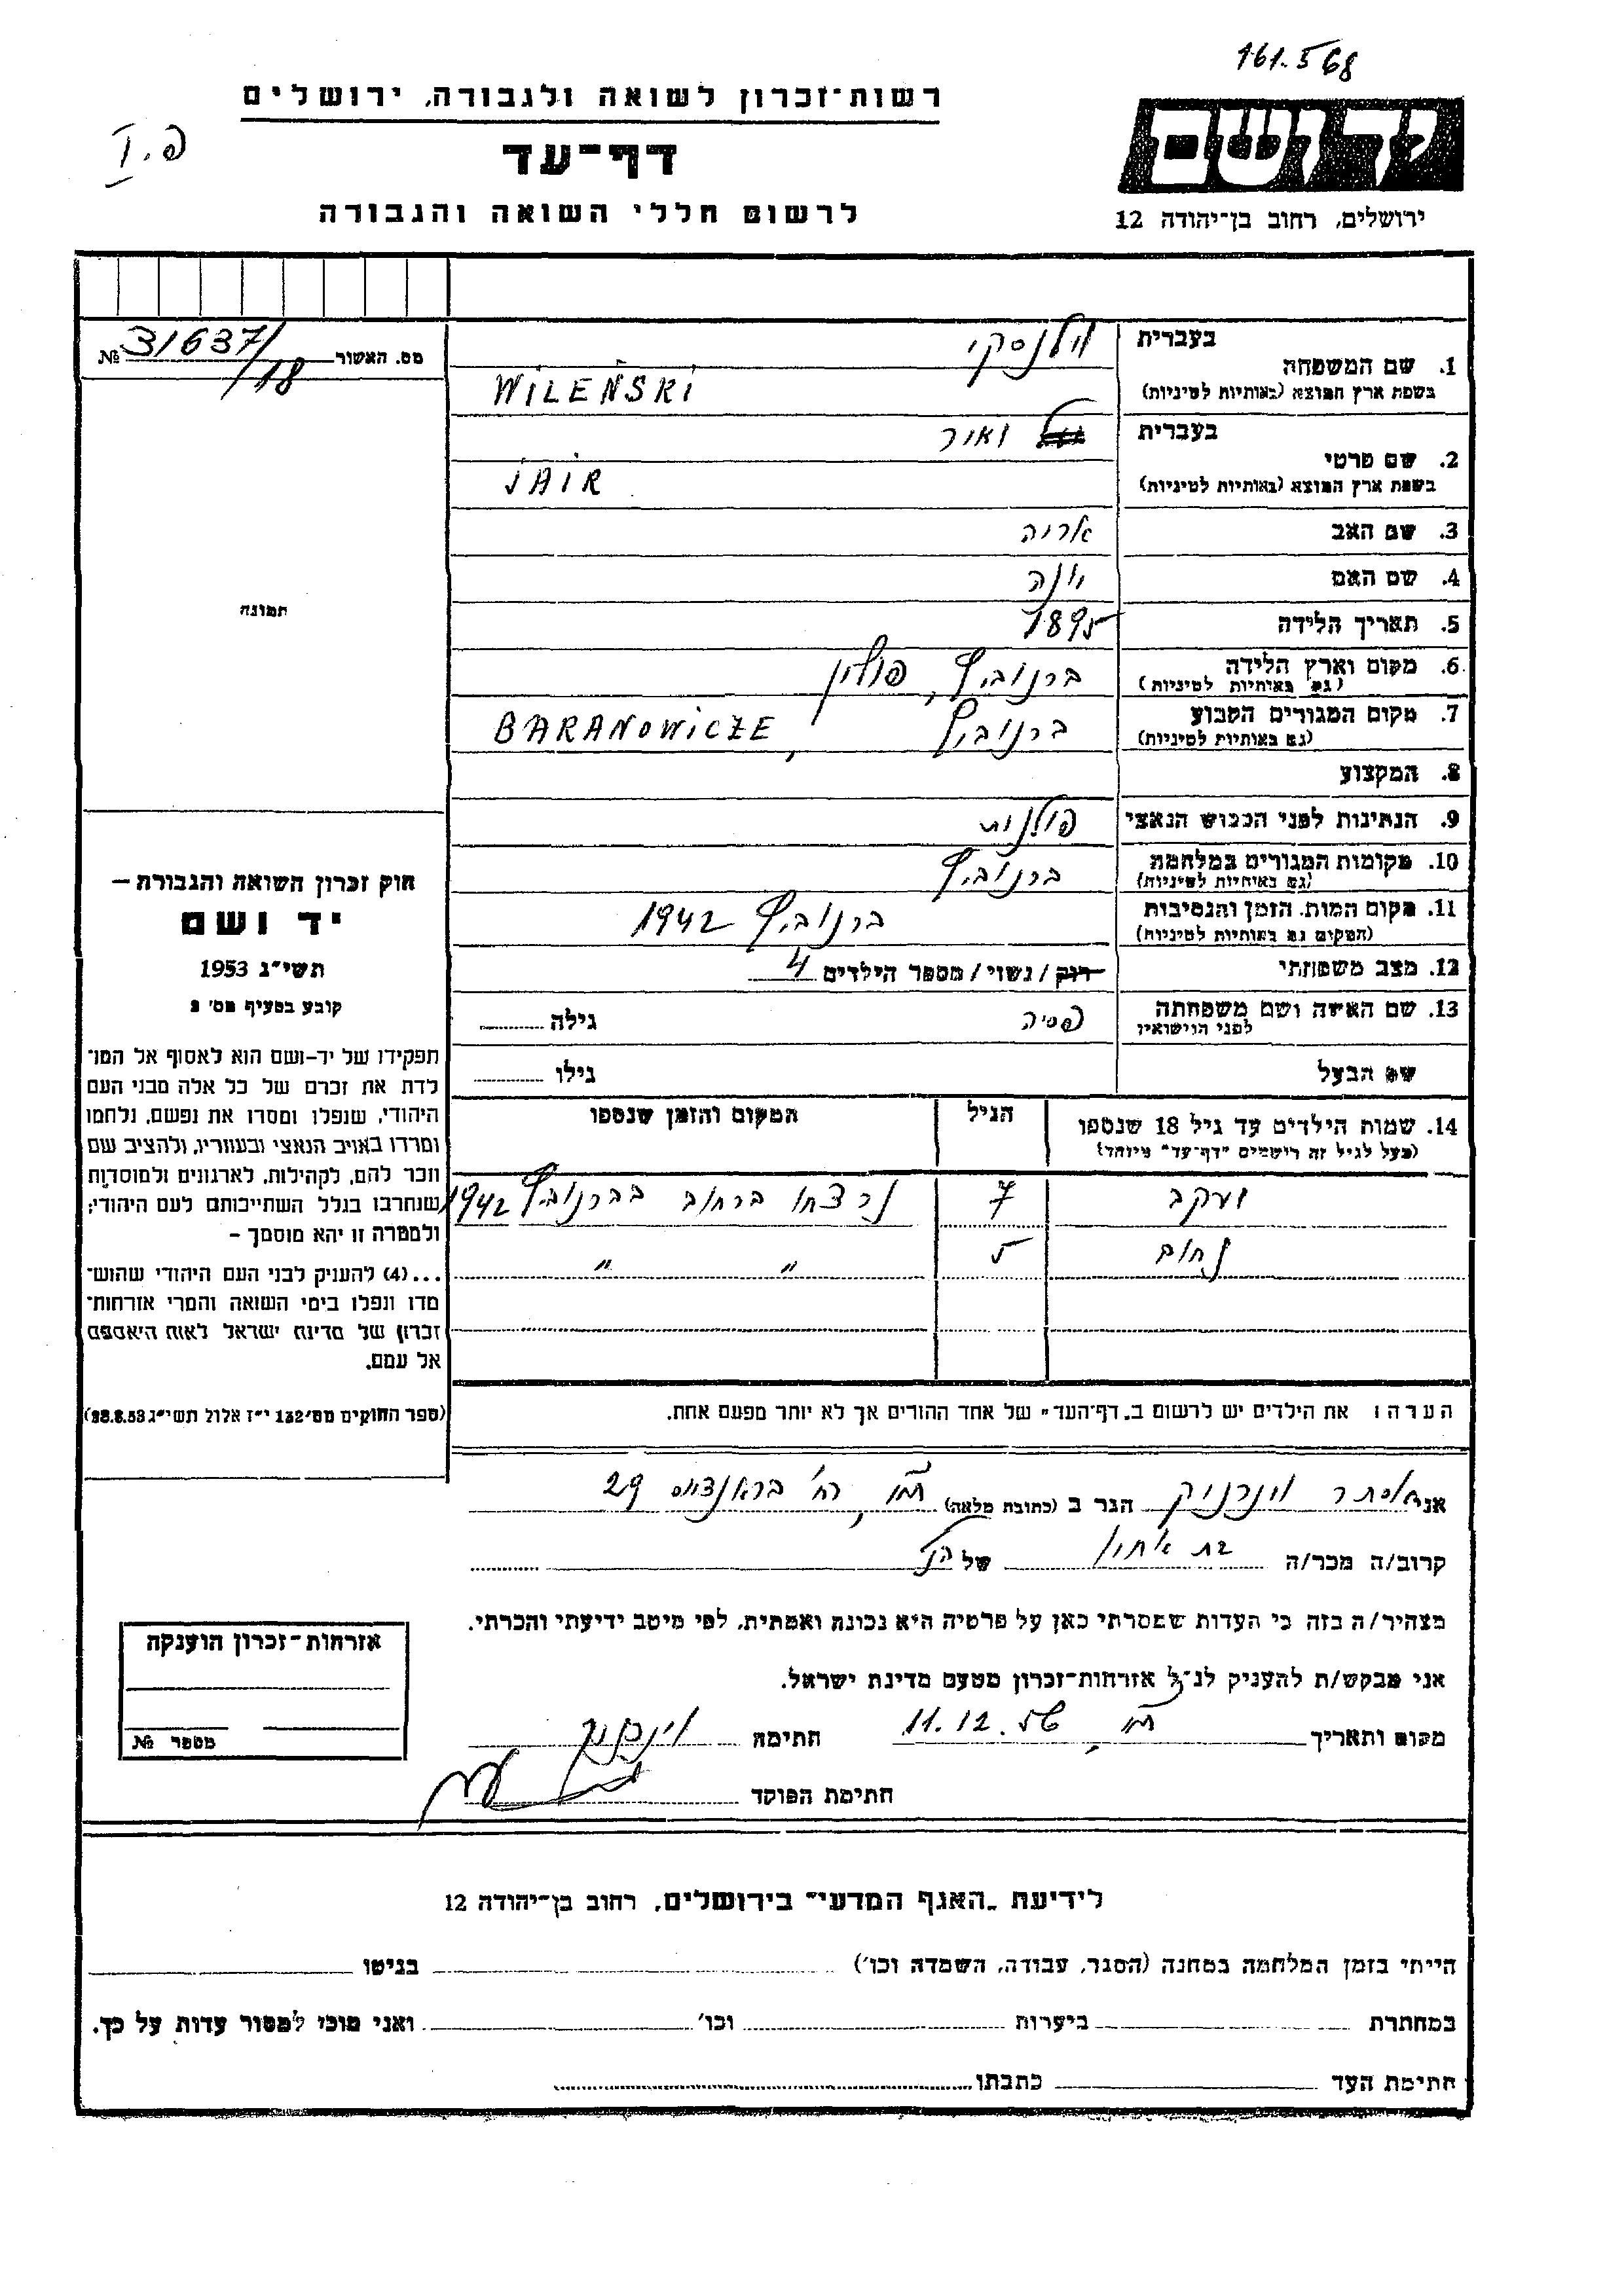 161.568
רשות-זכרון לשואה ולגבורה, ירושלים
פ. I
דף-עד
יד ושם
לרשום חללי השואה והגבורה
ירושלים, רחוב בן-יהודה 12
מס. האשור 31637/ №
/18
בעברית
וילנסקי
1. שם המשפחה
בשפת ארץ המוצא (באותיות לטיניות)
WILEŃSKI
בעברית
יאיר
2. שם פרטי
בשפת ארץ המוצא (באותיות לטיניות)
JAIR
3. שם האב אריה
4. שם האם יונה
5. תאריך הלידה 1895
6. מקום וארץ הלידה ברנוביץ, פולין
(גם באותיות לטיניות)
7. מקום המגורים הקבוע ברנוביץ, BARANOWICZE
(גם באותיות לטיניות)
8. המקצוע
9. הנתינות לפני הכבוש הנאצי פולנית
10. מקומות המגורים במלחמה ברנוביץ
(גם באותיות לטיניות)
11. מקום המות, הזמן והנסיבות ברנוביץ 1942
(המקום גם באותיות לטיניות)
12. מצב משפחתי רווק / נשוי / מספר הילדים 4
13. שם האישה ושם משפחתה גילה
לפני הנישואין
שם הבעל גילו
14. שמות הילדים עד גיל 18 שנספו הגיל המקום והזמן שנספו
(מעל לגיל זה רושמים "דף-עד" מיוחד)
יעקב 7 נרצחו ברחוב בברנוביץ 1942
נחום 5 " "
הערה: את הילדים יש לרשום ב„דף-העד" של אחד ההורים אך לא יותר מפעם אחת.
תמונה
חוק זכרון השואה והגבורה –
יד ושם
תשי"ג 1953
קובע בסעיף מס' 2
תפקידו של יד-ושם הוא לאסוף אל המו־
לדת את זכרם של כל אלה מבני העם
היהודי, שנפלו ומסרו את נפשם, נלחמו
ומרדו באויב הנאצי ובעוזריו, ולהציב שם
וזכר להם, לקהילות, לארגונים ולמוסדות
שנחרבו בגלל השתייכותם לעם היהודי;
ולמטרה זו יהא מוסמך –
...(4) להעניק לבני העם היהודי שהוש־
מדו ונפלו בימי השואה והמרי אזרחות־
זכרון של מדינת ישראל לאות היאספם
אל עמם.
(ספר החוקים מס' 132 י"ז אלול תשי"ג 28.8.53)
אני אסתר וינרניק הגר ב (כתובת מלאה) רח' 29
קרוב/ה מכר/ה בת אחיו של הנ"ל
מצהיר/ה בזה כי העדות שמסרתי כאן על פרטיה היא נכונה ואמתית, לפי מיטב ידיעתי והכרתי.
אני מבקש/ת להעניק לנ"ל אזרחות-זכרון מטעם מדינת ישראל.
מקום ותאריך 11.12.56 חתימה
חתימת הפוקד
אזרחות-זכרון הוענקה
מספר №
לידיעת „האגף המדעי" בירושלים, רחוב בן-יהודה 12
הייתי בזמן המלחמה במחנה (הסגר, עבודה, השמדה וכו') בגיטו
במחתרת ביערות וכו' ואני מוכן למסור עדות על כך.
חתימת העד כתבתו